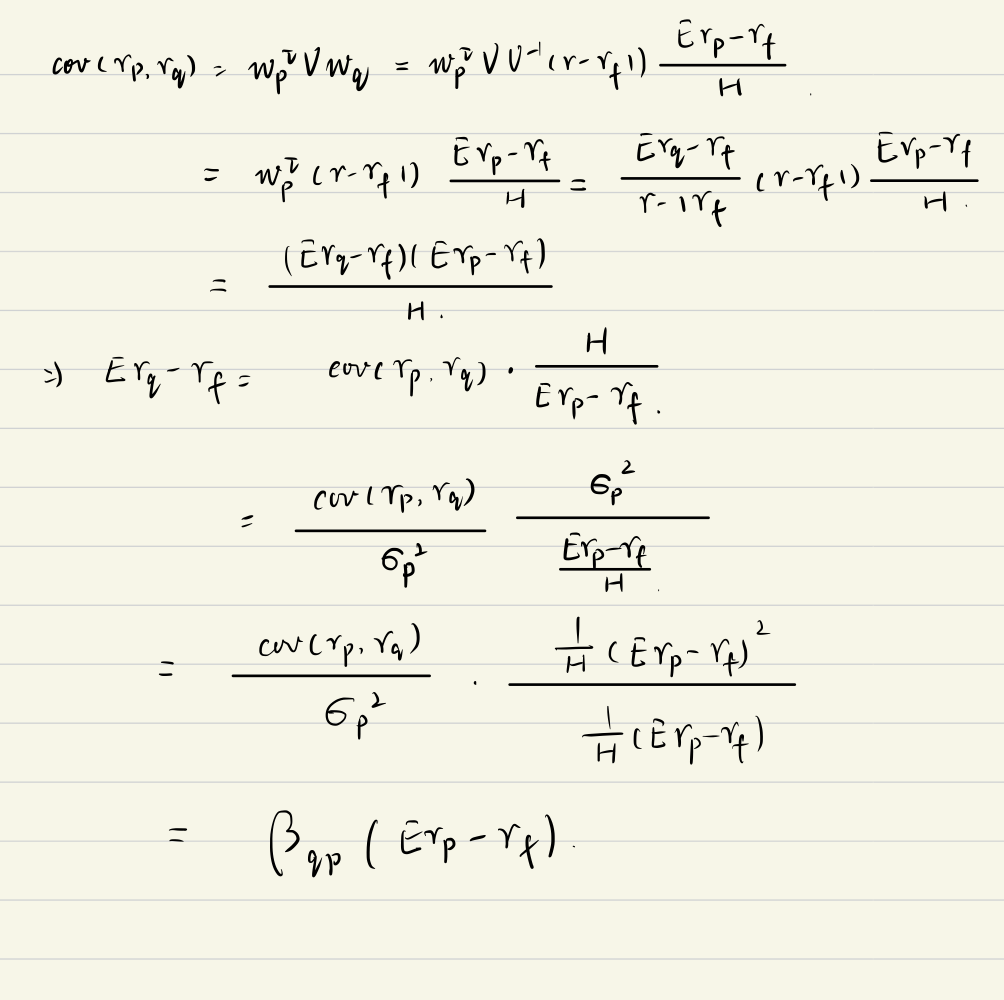 cov(r_p, r_q) = w_p^T V w_q = w_p^T V V^{-1} (r - r_f 1) \frac{E r_p - r_f}{H}.
= w_p^T (r - r_f 1) \frac{E r_p - r_f}{H} = \frac{E r_q - r_f}{r - 1 r_f} (r - r_f 1) \frac{E r_p - r_f}{H}.
= \frac{(E r_q - r_f)(E r_p - r_f)}{H}.
⇒ E r_q - r_f = cov(r_p, r_q) · \frac{H}{E r_p - r_f}.
= \frac{cov(r_p, r_q)}{σ_p^2} \frac{σ_p^2}{\frac{E r_p - r_f}{H}}.
= \frac{cov(r_p, r_q)}{σ_p^2} · \frac{\frac{1}{H} (E r_p - r_f)^2}{\frac{1}{H} (E r_p - r_f)}
= β_{qp} (E r_p - r_f).